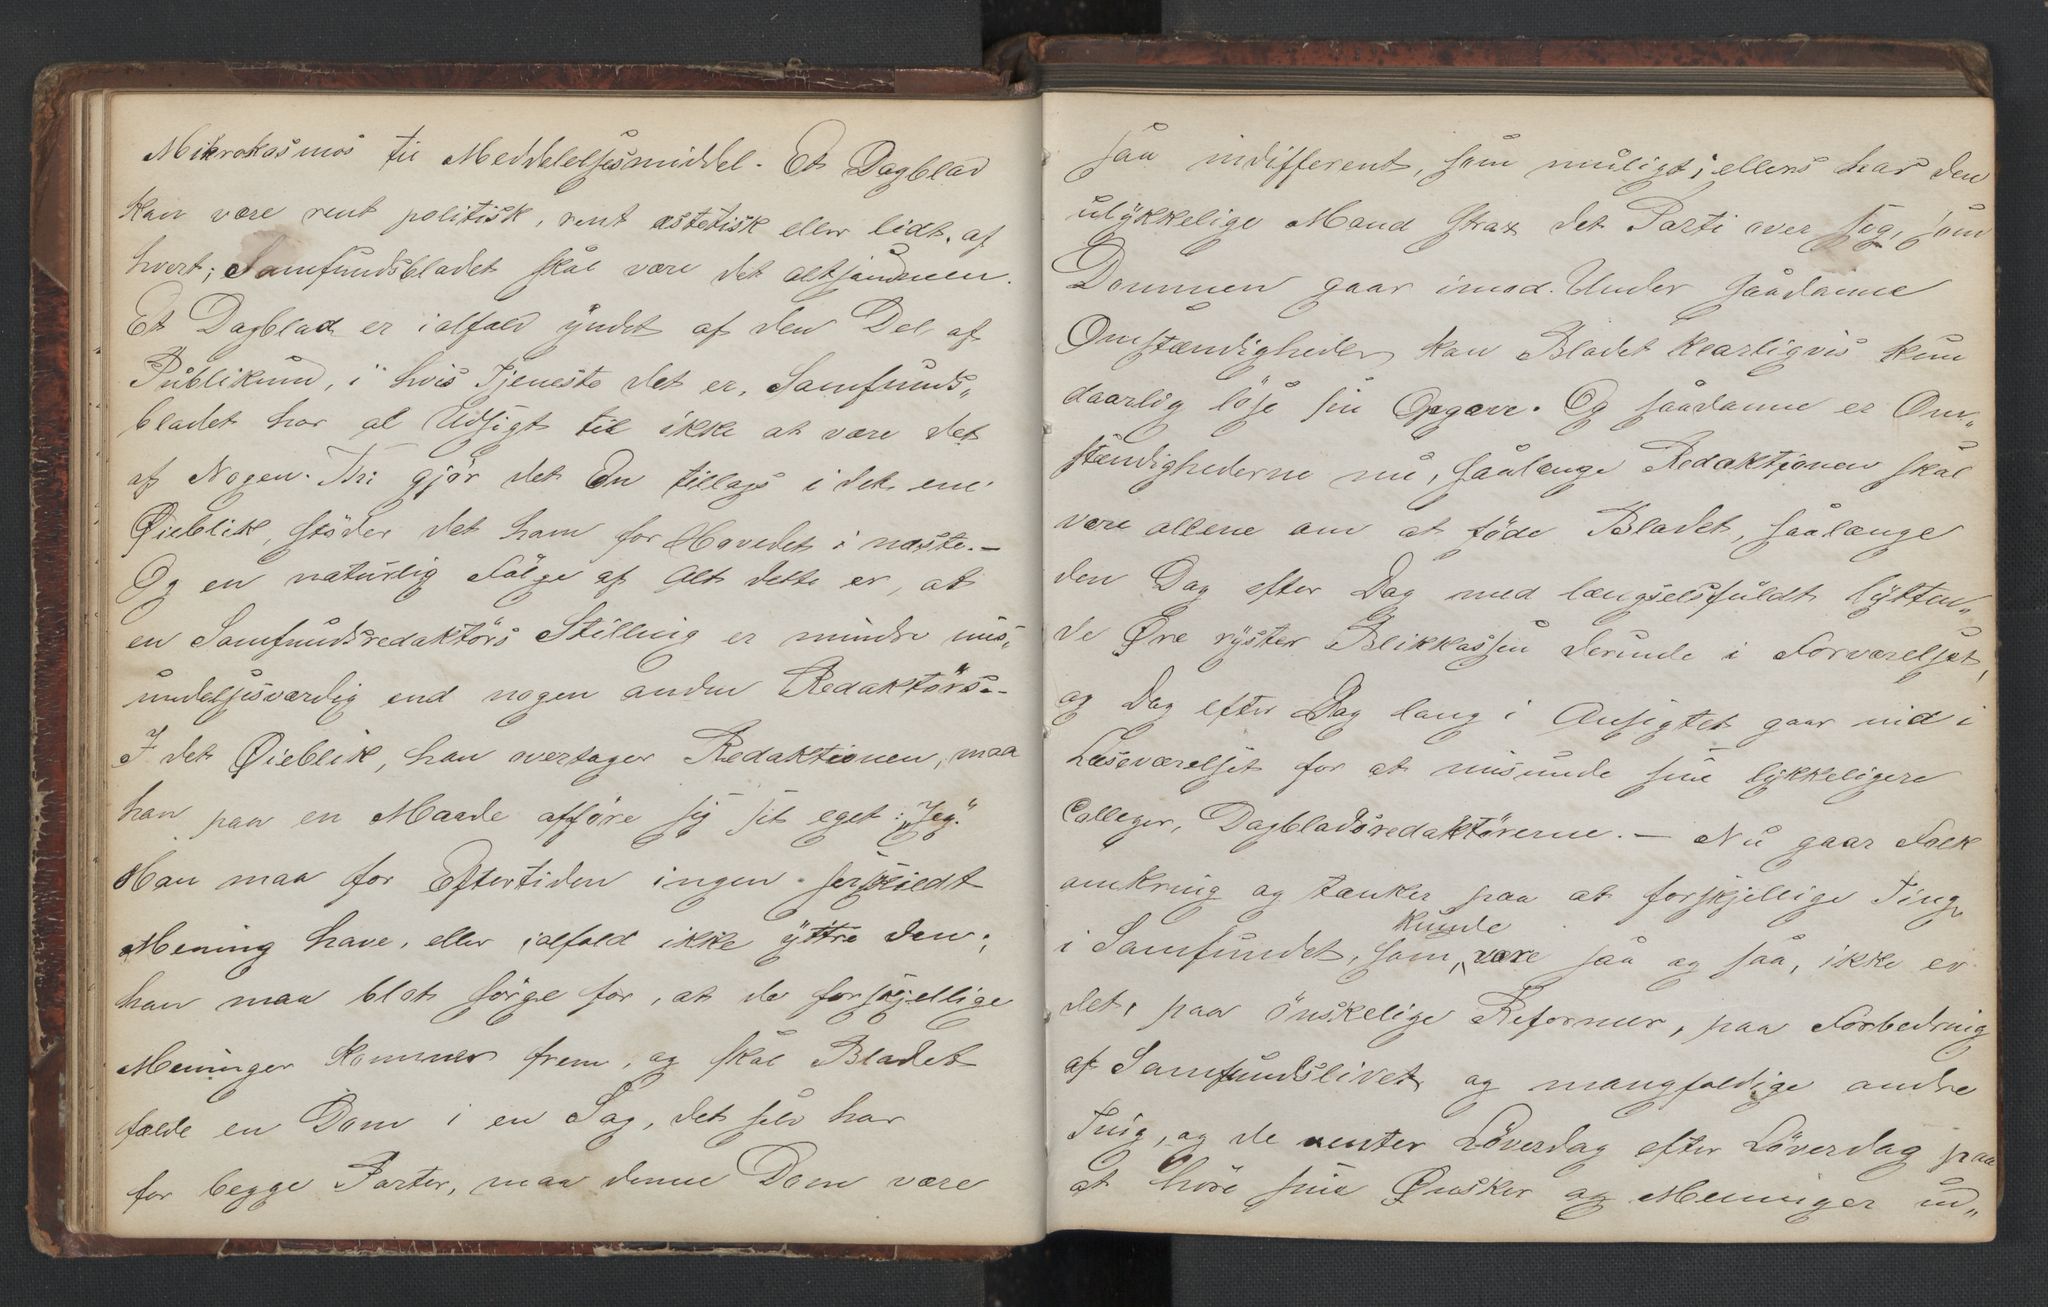 Mikrokosmos til Meddelelsesmiddel. Et Dagblad
kan være rent politisk, rent æstetisk eller lidt af
hvert; Samfundsbladet skal være det altsammen.
Et Dagblad er ialfald yndet af den Del af
Publikum, i hvis Tjeneste det er, Samfunds„
bladet har al Udsigt til ikke at være det
af Nogen. Thi gjør det En tillags i det ene
Øieblik, støder det ham for Hovedet i næste. —
Og en naturlig Følge af Alt dette er, at
en Samfundsredaktørs Stilling er mindre mis„
undelsesværdig end nogen anden Redaktørs. —
I det Øieblik, han overtager Redaktionen, maa
han paa en Maade afføre sig sit eget „Jeg.“
Han maa for Eftertiden ingen særskildt
Mening have, eller ialfald ikke yttre den;
han maa blot sørge for, at de forskjellige
Meninger kommer frem, og skal Bladet
fælde en Dom i en Sag, det selv har
for begge Parter, maa denne Dom være
saa indifferent, som muligt; ellers har den
ulykkelige Mand strax det Parti over sig, som
Dommen gaar imod. Under saadanne
Omstændigheder kan Bladet klarligvis kun
daarlig løse sin Opgave. Og saadanne er Om„
stændighederne nu, saalænge Redaktionen skal
være allene om at føde Bladet, saalænge
den Dag efter Dag med længselsfuldt lytten„
de Øre ryster Blikkassen derinde i Forværelset,
og Dag efter Dag lang i Ansigtet gaar ind i
Læseværelset for at misunde sine lykkeligere
Colleger, Dagbladsredaktørerne. — Nu gaar Folk
omkring og tænker paa at forskjellige Ting
i Samfundet, som kunde være saa og saa, ikke er
det, paa ønskelige Reformer, paa Forbedring
af Samfundslivet og mangfoldige andre
Ting, og de venter Løverdag efter Løverdag paa
at høre sine Ønsker og Meninger ud„